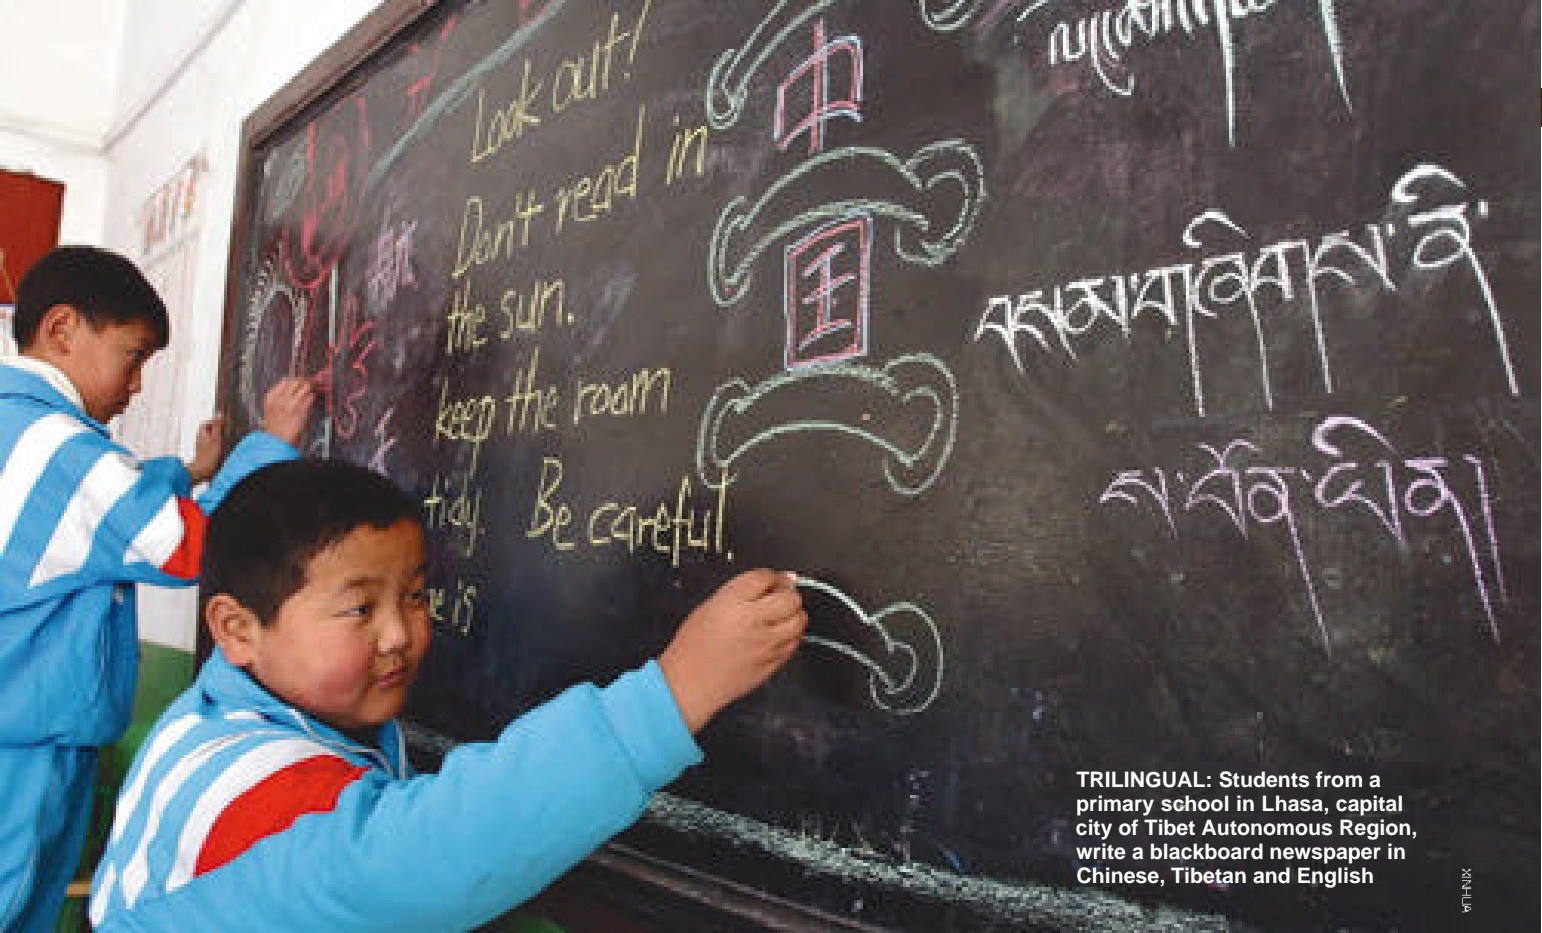 Look out!
Don't read in
the sun.
keep the room
tidy. Be careful.
is
中
国
བསམ་བཞིབས་ནི་
ས་བོན་ཡིན།
TRILINGUAL: Students from a
primary school in Lhasa, capital
city of Tibet Autonomous Region,
write a blackboard newspaper in
Chinese, Tibetan and English
XINHUA